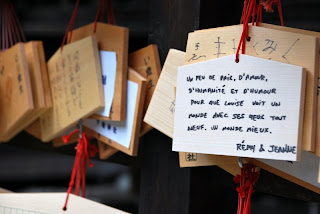 UN PEU DE PAIX, D'AMOUR,
D'HUMANITÉ ET D'HUMOUR
POUR QUE LOUISE VOIT UN
MONDE AVEC SES YEUX TOUT
NEUF. UN MONDE MIEUX.
RÉMY & JEANNE